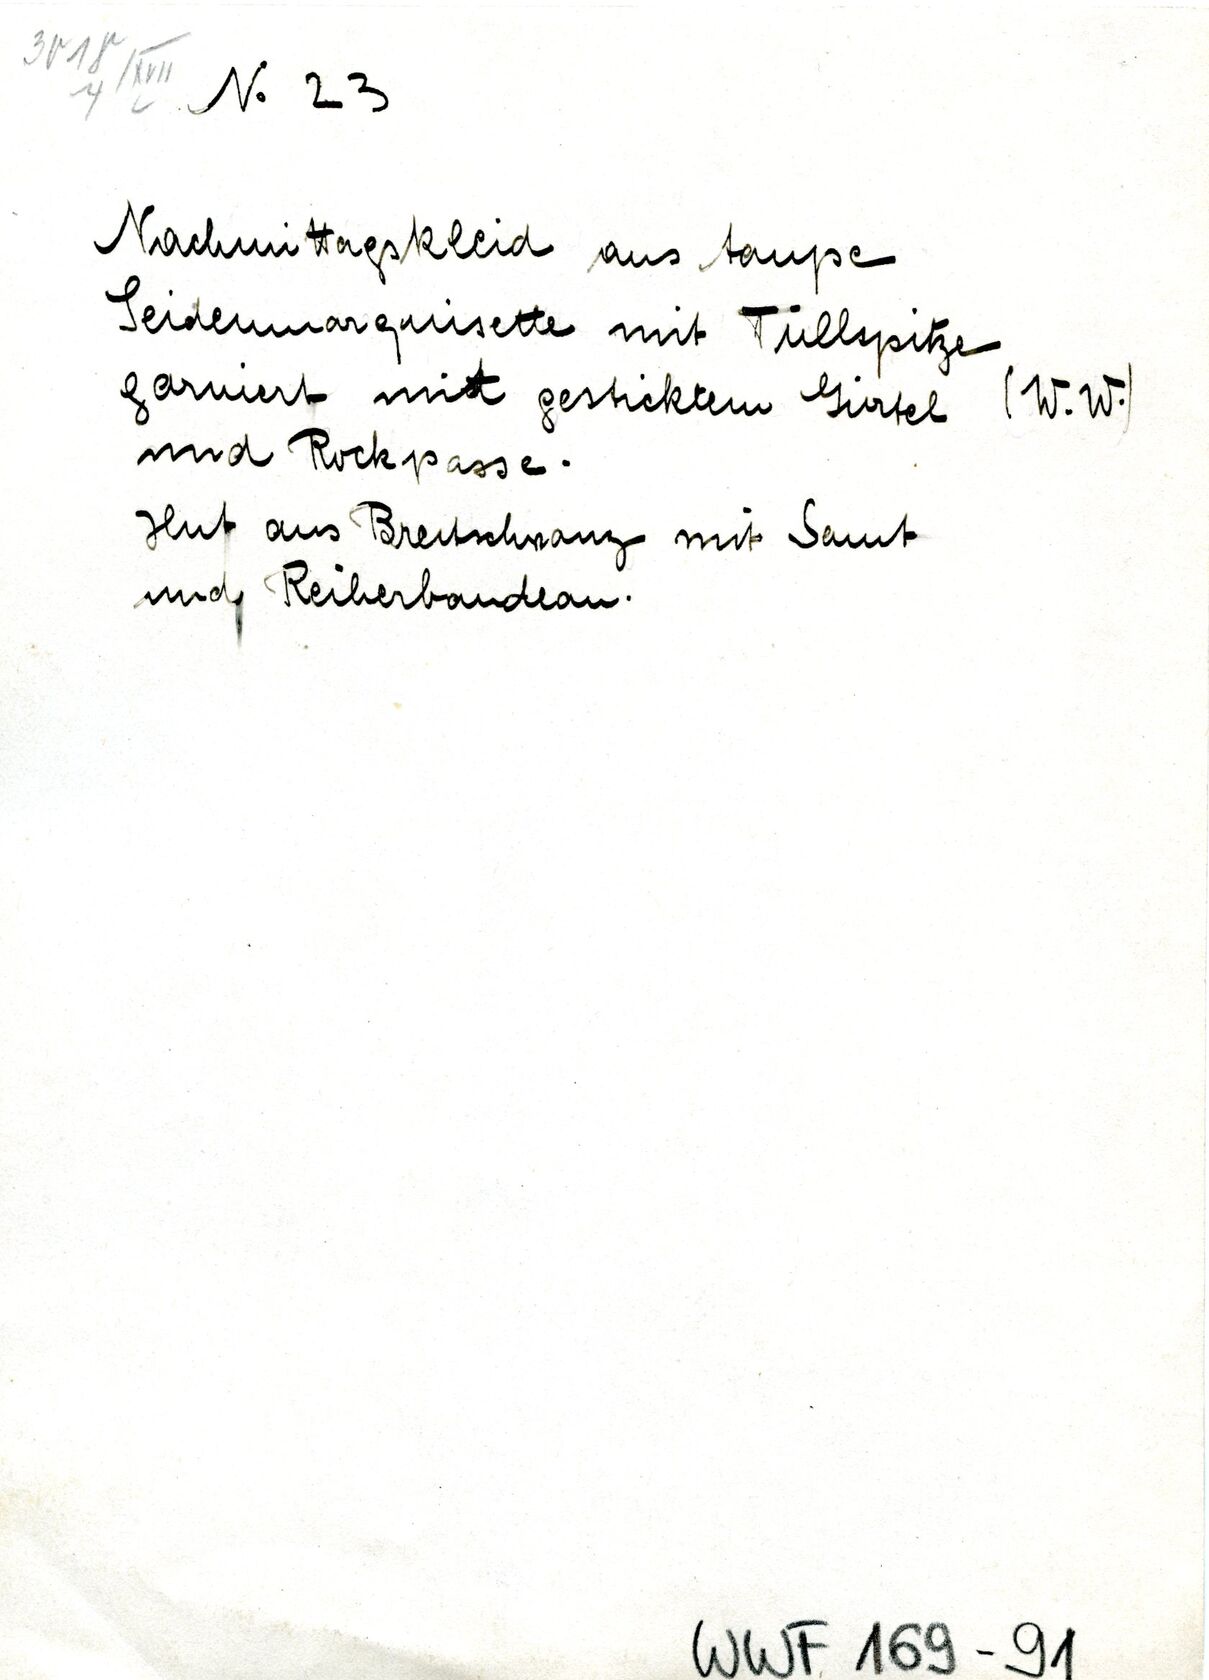 N. 23
Nachmittagskleid aus taupe
Seidenmarquisette mit Tüllspitze
garniert mit gesticktem Gürtel (W.W.)
und Rockpasse.
Hut aus Breitschwanz mit Samt
und Reiherbandeau.
WWF 169-91